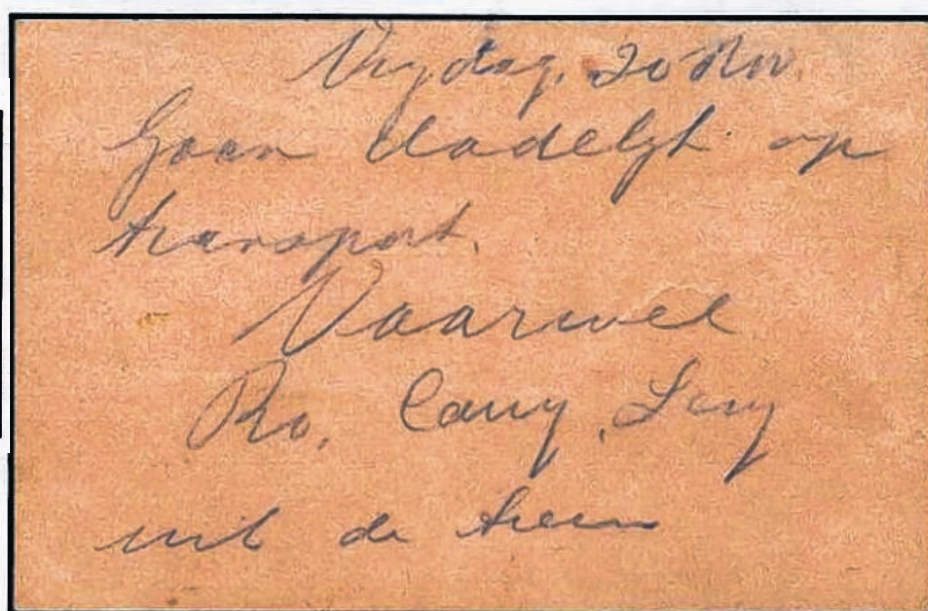 Vrijdag. 20 Nov.
Gaan dadelijk op
transport.
Vaarwel
Ro,
uit de trein